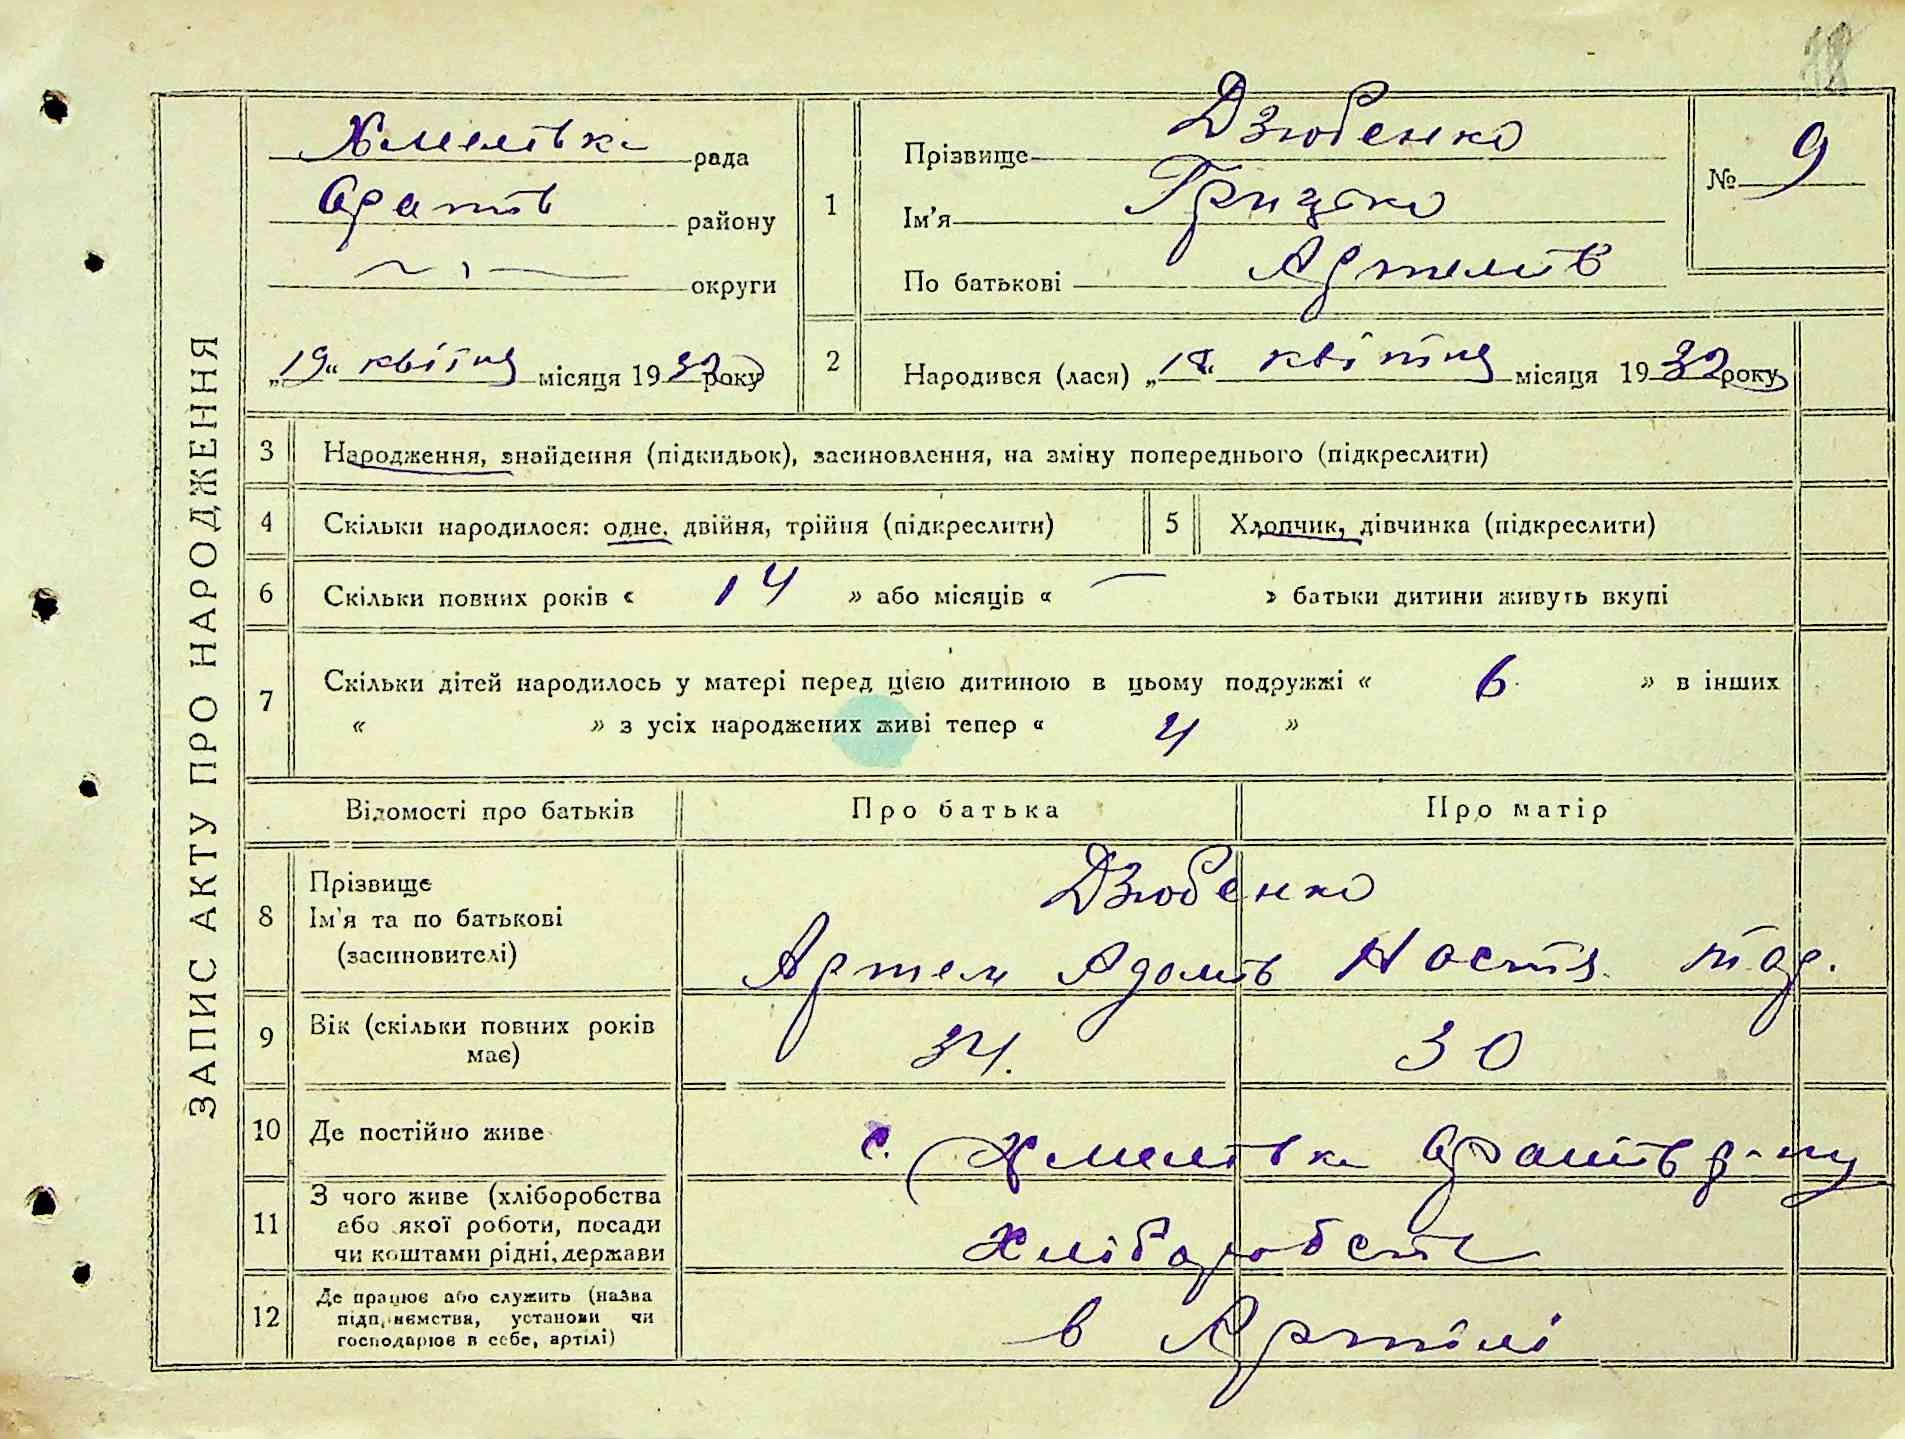 ЗАПИС АКТУ ПРО НАРОДЖЕННЯ
18
Хмелівка рада
Оратів району
округи
„19“ квітня місяця 1932 року
1
Прізвище Дзюбенко
Ім’я Грицько
По батькові Артемів
№ 9
2
Народився (лася) „18“ квітня місяця 1932 року
3 Народження, знайдення (підкидьок), засиновлення, на зміну попереднього (підкреслити)
4 Скільки народилося: одне, двійня, трійня (підкреслити)
5 Хлопчик, дівчинка (підкреслити)
6 Скільки повних років « 14 » або місяців « — » батьки дитини живуть вкупі
7 Скільки дітей народилось у матері перед цією дитиною в цьому подружжі « 6 » в інших
« » з усіх народжених живі тепер « 4 »
Відомості про батьків Про батька Про матір
8 Прізвище
Ім’я та по батькові
(засиновителі)
Дзюбенко
Артем Адамів Настя Тод.
9 Вік (скільки повних років
має)
34. 30
10 Де постійно живе с. Хмелівка Оратів р-ну
11 З чого живе (хліборобства
або якої роботи, посади
чи коштами рідні, держави
Хліборобств
12 Де працює або служить (назва
підприємства, установи чи
господарює в себе, артілі)
в Артілі